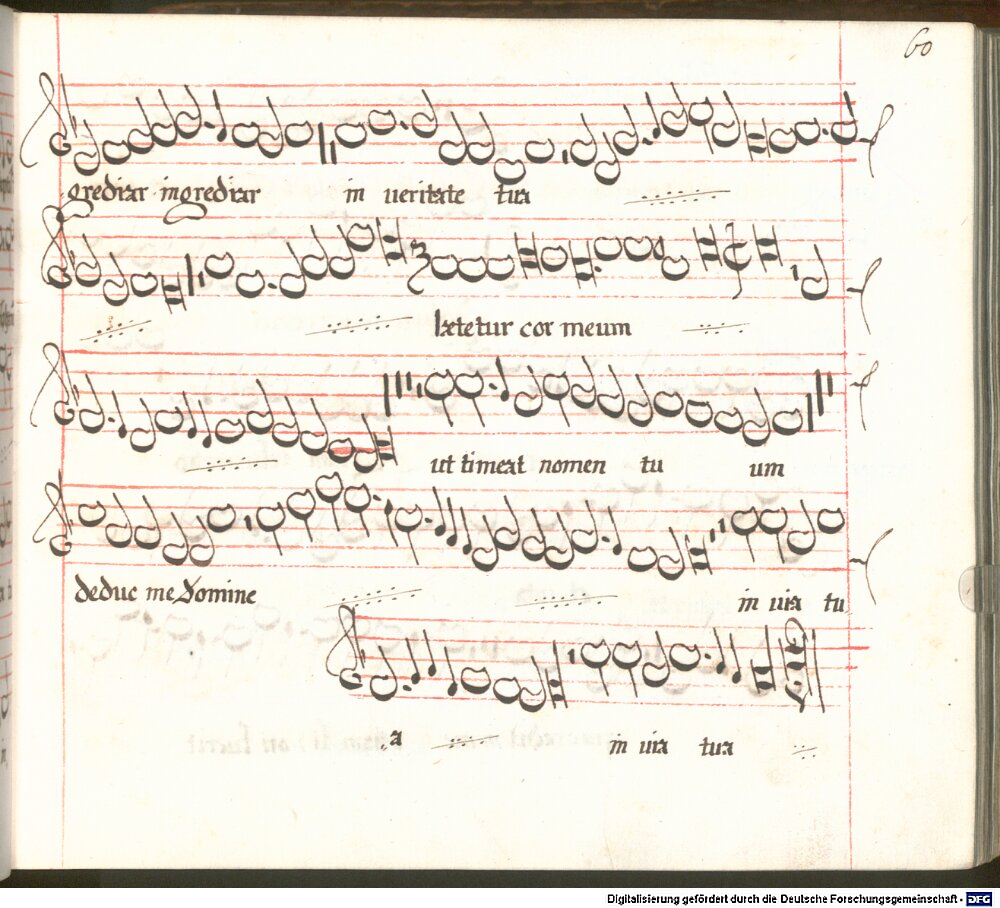 60
grediar ingrediar in ueritate tua
lætetur cor meum
ut timeat nomen tu um
deduc me Domine in uia tu
a in uia tua
Digitalisierung gefördert durch die Deutsche Forschungsgemeinschaft - DFG